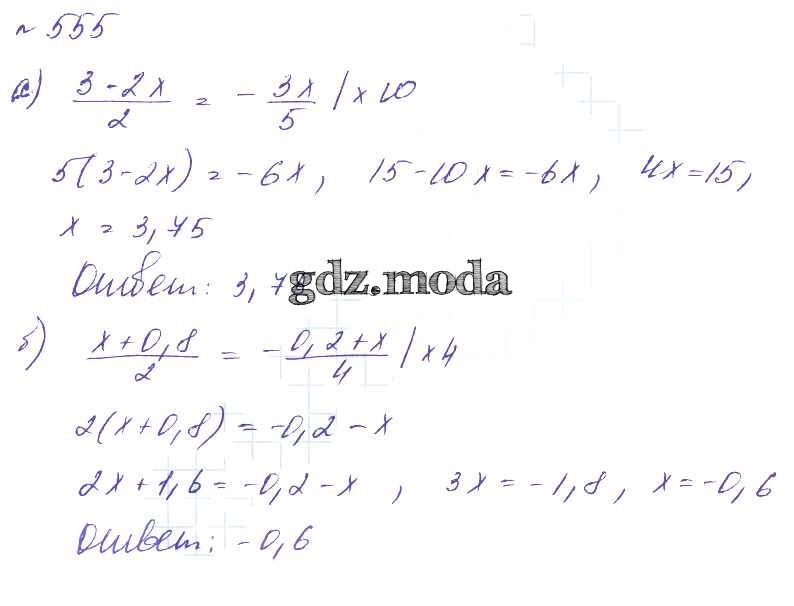 № 555
а) (3 - 2x)/2 = - 3x/5 | × 10
5(3 - 2x) = - 6x, 15 - 10x = - 6x, 4x = 15,
x = 3,75
Ответ: 3,7
gdz.moda
б) (x + 0,8)/2 = - (0,2 + x)/4 | × 4
2(x + 0,8) = -0,2 - x
2x + 1,6 = -0,2 - x, 3x = - 1,8, x = -0,6
Ответ: - 0,6